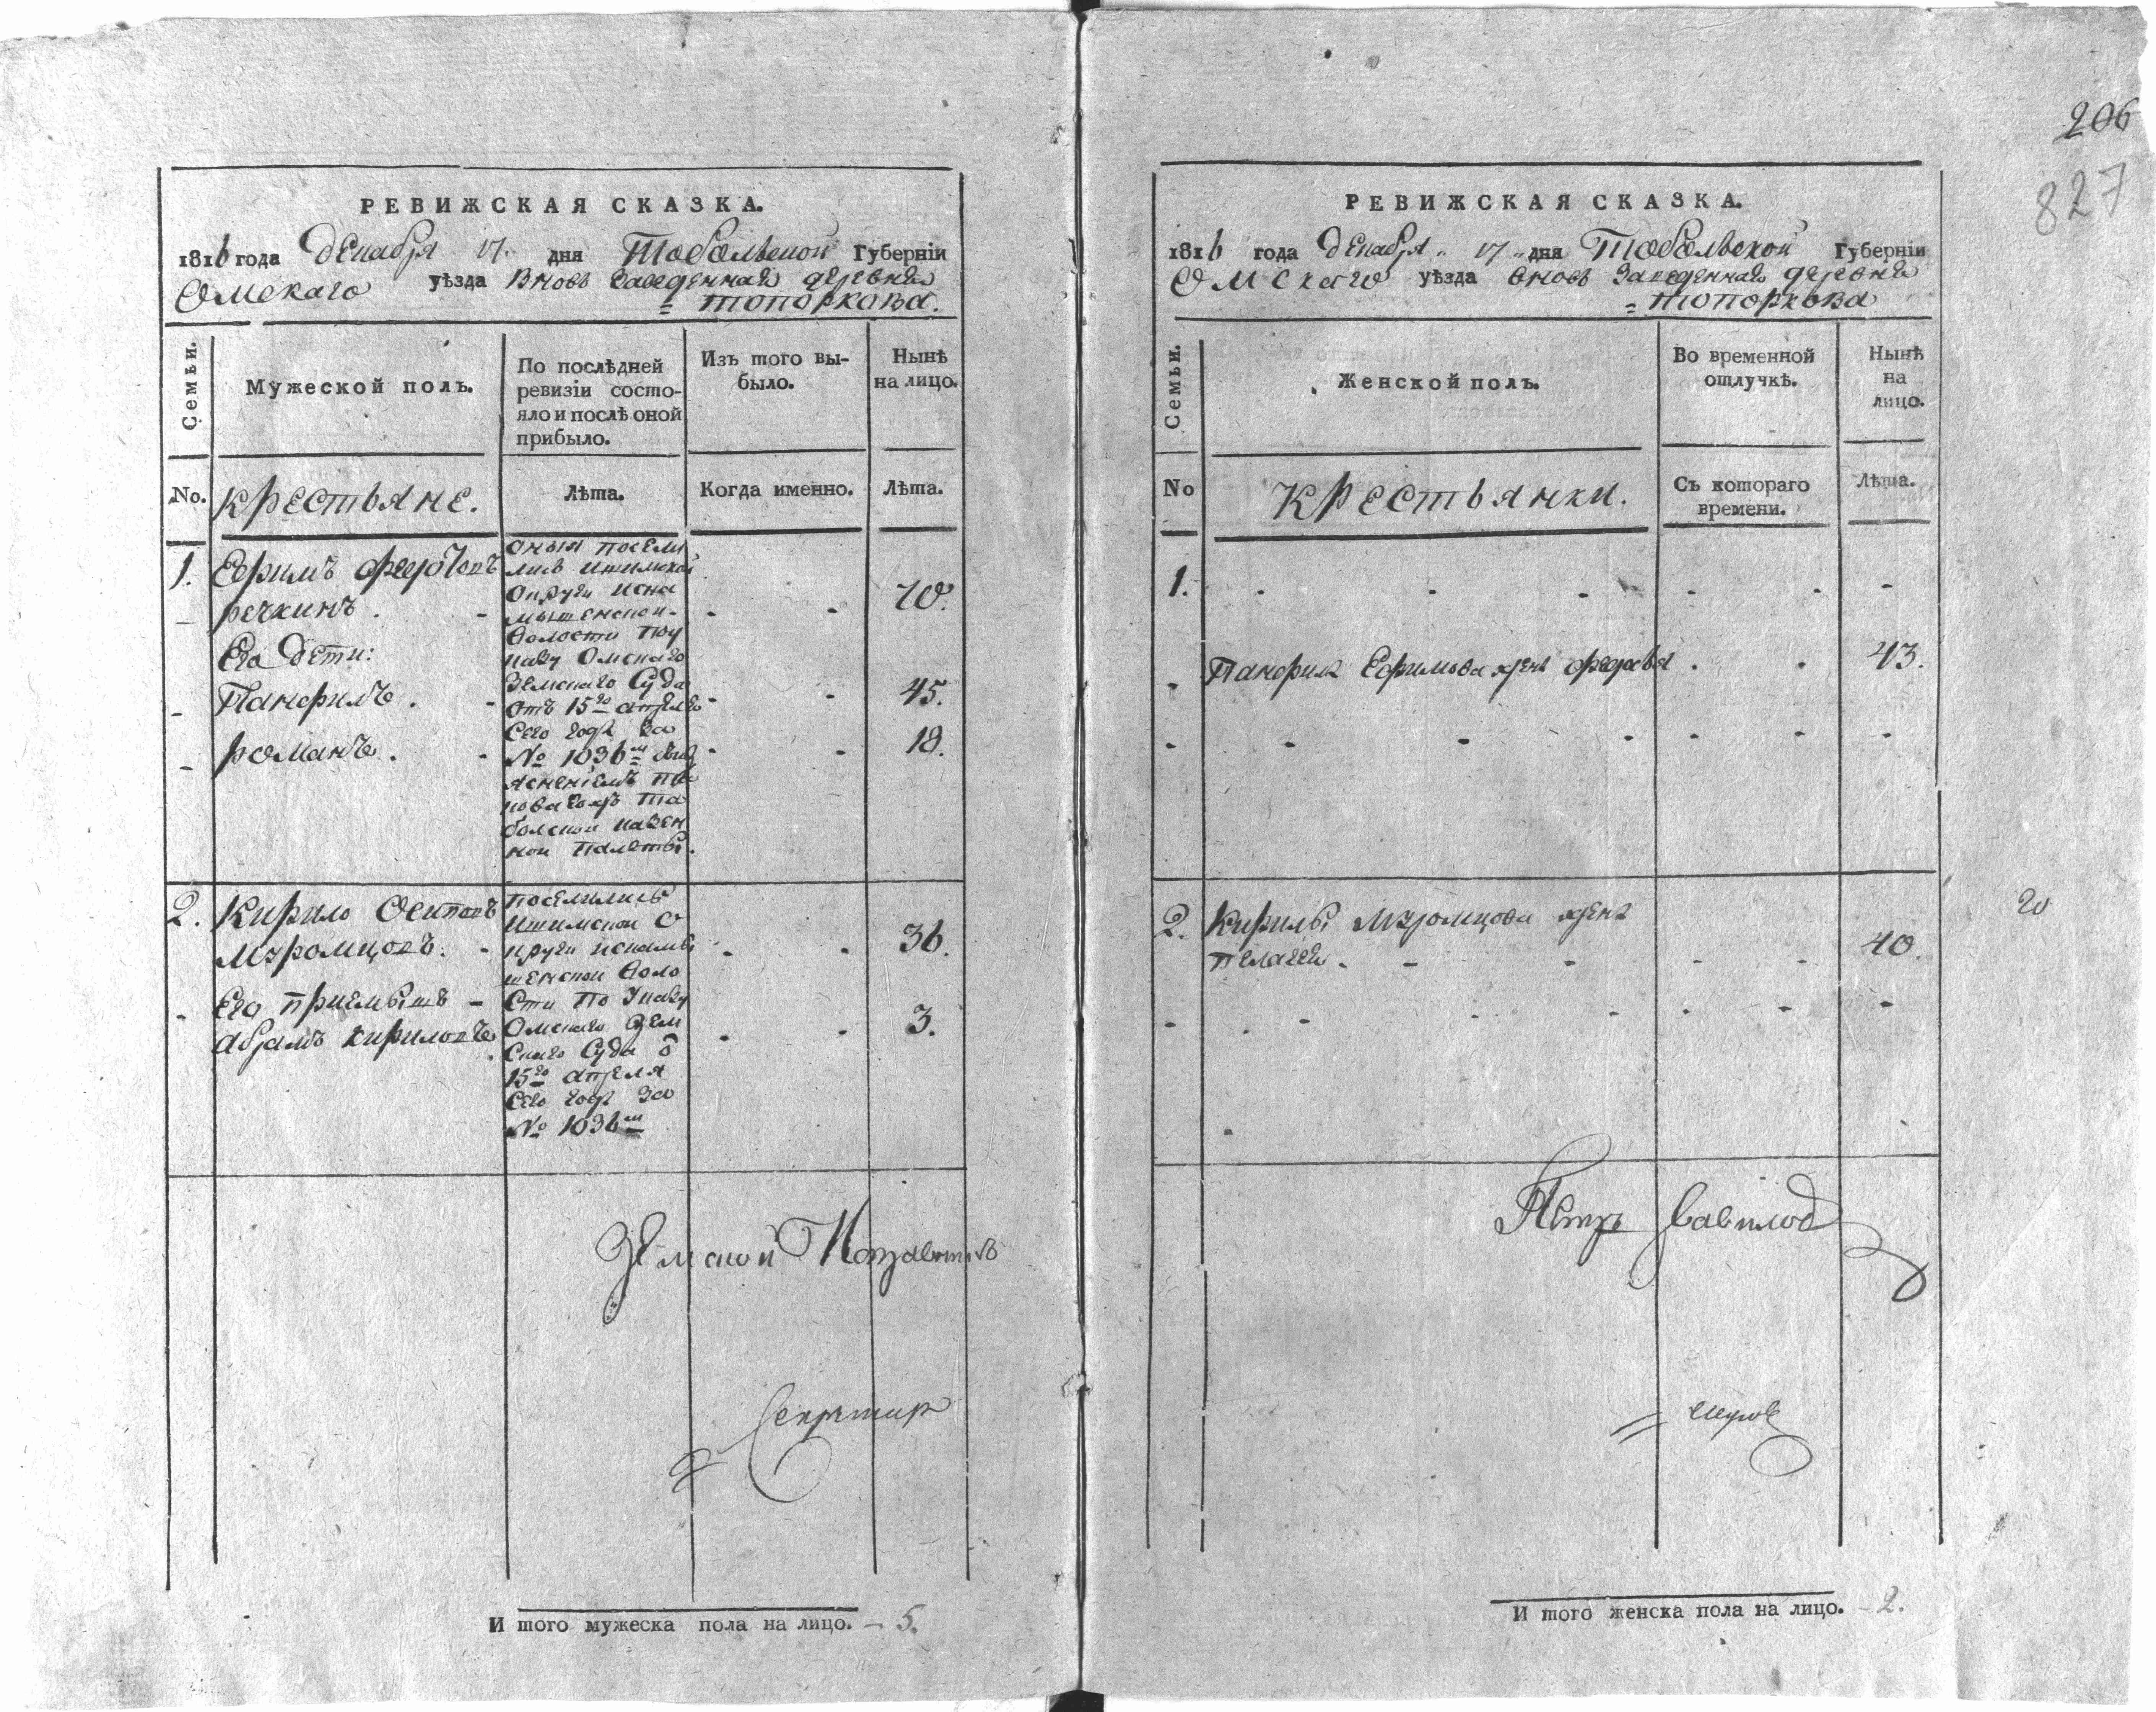 206
827
РЕВИЖСКАЯ СКАЗКА.
1816 года Декабря 17. дня Тобольской Губерніи
Омскаго уѣзда вновь заведенная деревня
топоркова.
Семьи.
Мужеской полъ.
По послѣдней
ревизіи состо-
яло и послѣ оной
прибыло.
Изъ того вы-
было.
Нынѣ
на лицо.
No.
крестьяне.
Лѣта.
Когда именно.
Лѣта.
1. Ефимъ федотовъ
речкинъ. 70.
Его дети:
Панфилъ. 45.
романъ. 18.
оныя посели
лись ишимской
округи
волости
казу Омскаго
Земскаго Суда
отъ 15го апреля
Сего года за
№ 1036м
болской казен
ной палаты.
2. Кирило Осиповъ
Муромцовъ. 36.
Его приемышъ
абрамъ кириловъ 3.
поселились
ишимской о
круги
шенской воло
сти по Указу
Омскаго Зем
скаго Суда
15го апреля
Сего года за
№ 1036м
Земской
Секретарь
И того мужеска пола на лицо. – 5.
РЕВИЖСКАЯ СКАЗКА.
1816 года декабря 17 дня Тобольской Губерніи
Омскаго уѣзда вновь заведенная деревня
топоркова
Семьи.
Женской полъ.
Во временной
отлучкѣ.
Нынѣ
на
лицо.
No
Крестьянки.
Съ котораго
времени.
Лѣта.
1.
Панфила Ефимова жена 43.
2. Кирилы Муромцова жена
Пелагея 40.
20
Петръ Вавилов
И того женска пола на лицо. – 2.